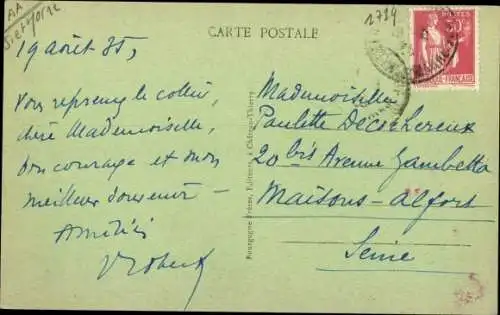 AA
CARTE POSTALE
1739
POSTES
19 août 35,
Vous reprenez le collier,
chère Mademoiselle,
bon courage et mon
meilleur souvenir
Amitiés
Mademoiselle
Paulette Decochereux
20 bis Avenue Gambetta
Maisons-Alfort
Seine
Bourgogne Frères, Editeurs, à Château-Thierry